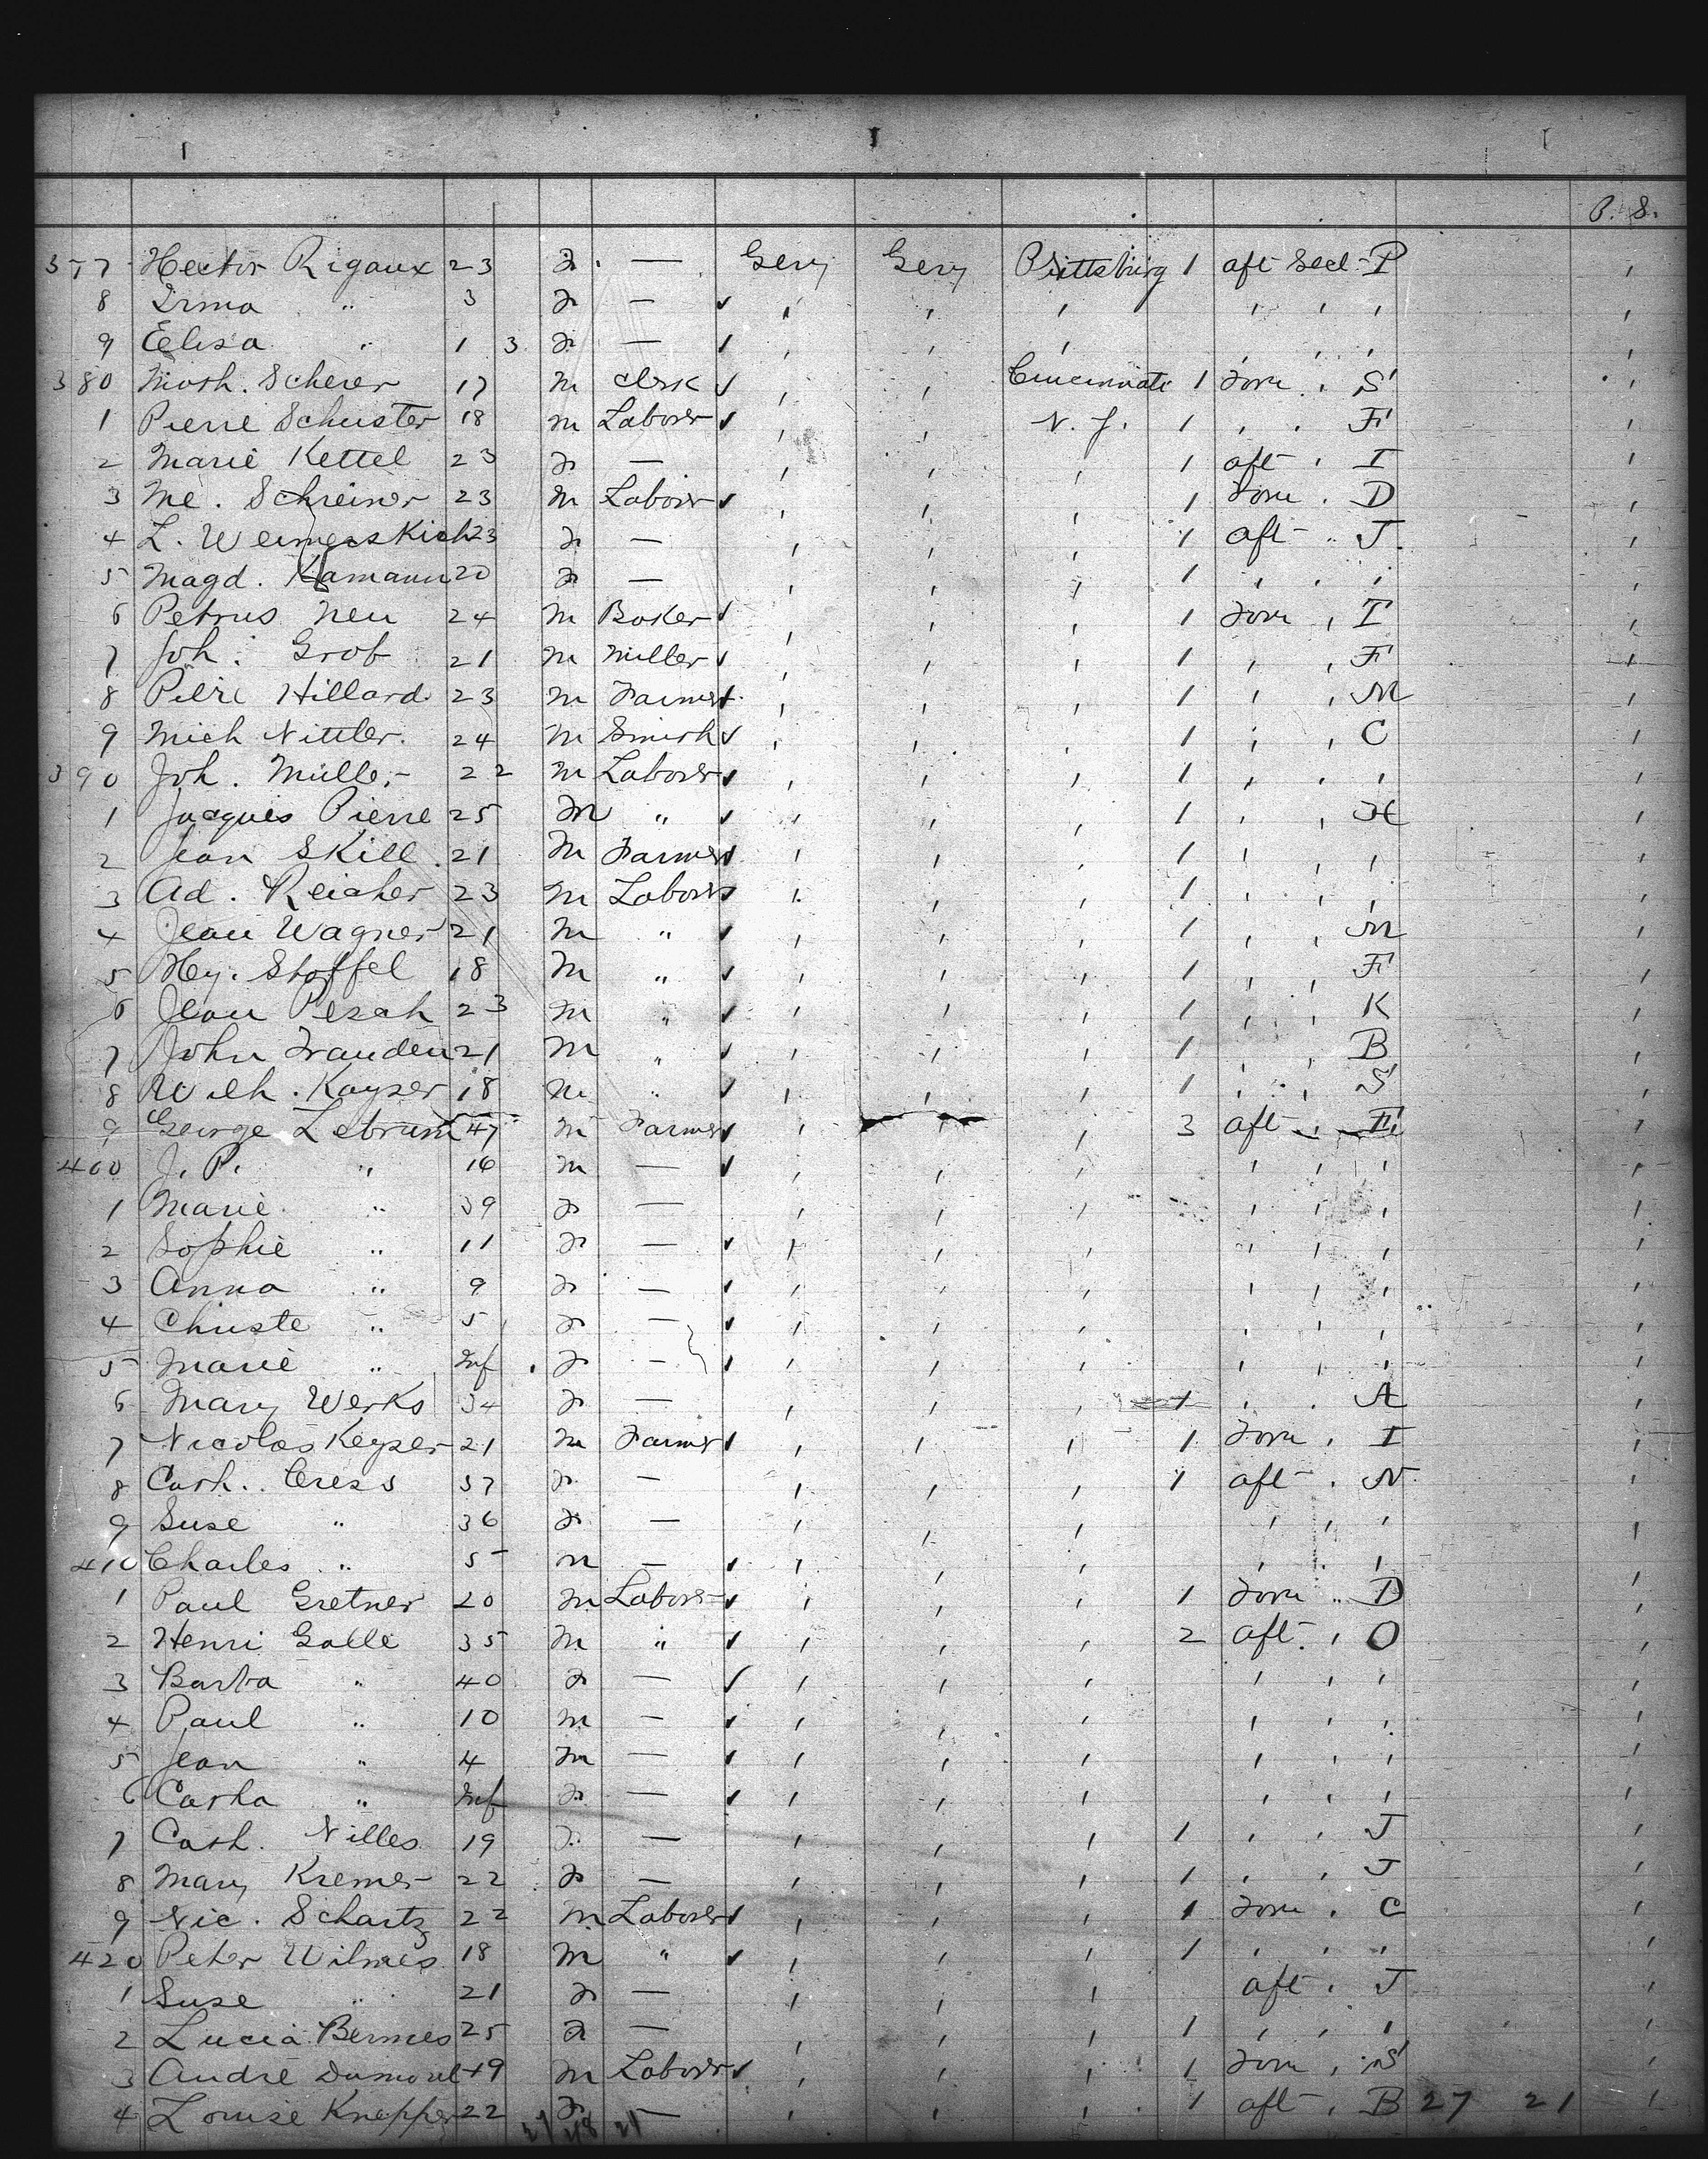 P. S.
377 Hector Rigaux 23 F. — Gery Gery Pittsburg 1 aft Seel. P '
8 Irma " 3 F — ✓ ' ' ' ' ' ' '
9 Elisa " 1 3 F — ' ' ' ' ' ' '
380 Math. Scherer 17 m Clerk ✓ ' ' Cincinnati 1 Forw ' S '
1 Pierre Schuster 18 m Laborer ✓ ' ' N. J. 1 ' ' F '
2 Marie Kettel 23 F — ' ' ' 1 aft ' I '
3 Me. Schreiner 23 m Laborer ✓ ' ' ' 1 Forw ' D '
4 L. Weimerskich 23 F — ' ' ' 1 aft " J. '
5 Magd. Hamann 20 F — ' ' ' 1 ' ' ' '
6 Petrus Neu 24 m Baker ✓ ' ' ' 1 Forw ' I '
7 Joh. Grob 21 m Miller ✓ ' ' ' 1 ' ' F '
8 Peire Hillard 23 m Farmer ✓ ' ' ' 1 ' ' M '
9 Mich Nittler. 24 m Smith ✓ ' ' ' 1 ' ' C '
390 Joh. Müller 22 m Laborer ✓ ' ' ' 1 ' ' ' '
1 Jacques Pierre 25 m " ✓ ' ' ' 1 ' ' H '
2 Jean Skill. 21 m Farmer ✓ ' ' ' 1 ' ' ' '
3 Ad. Reicher 23 m Laborer ✓ ' ' ' 1 ' ' ' '
4 Jean Wagner 21 m " ✓ ' ' ' 1 ' ' M '
5 Hy. Stoffel 18 m " ✓ ' ' ' 1 ' ' F '
6 Jean Pesch 23 m " ✓ ' ' ' 1 ' ' K '
7 John Frauden 21 m " ✓ ' ' ' 1 ' ' B '
8 Wilh. Kayser 18 m " ✓ ' ' ' 1 ' ' S '
9 George Lebrun 47 m Farmer ✓ ' ' 3 aft ' E '
400 J. P. " 16 m — ✓ ' ' ' ' ' ' '
1 Marie " 39 F — ' ' ' ' ' ' '
2 Sophie " 11 F — ✓ ' ' ' " ' ' '
3 Anna " 9 F — ✓ ' ' ' ' ' ' '
4 Christe " 5 F — ✓ ' ' ' ' ' ' '
5 Marie " Inf F — ' ' ' ' ' ' ' '
6 Mary Werks 34 F — ' ' ' 1 ' ' A '
7 Nicolas Keyser 21 m Farmer ✓ ' ' ' 1 Forw ' I '
8 Cath. Cress 37 F — ' ' ' 1 aft ' N '
9 Suse " 36 F — ' ' ' ' ' ' '
410 Charles " 5 m — ✓ ' ' ' ' ' ' '
1 Paul Gretner 20 m Laborer ✓ ' ' ' 1 Forw " D '
2 Henri Galle 35 m " ✓ ' ' ' 2 aft. ' O '
3 Barba " 40 F — ✓ ' ' ' ' ' ' '
4 Paul " 10 m — ✓ ' ' ' ' ' ' '
5 Jean " 4 m — ✓ ' ' ' ' ' ' '
6 Catha " Inf F — ✓ ' ' ' ' ' ' '
7 Cath. Nilles 19 F — ' ' ' 1 ' ' J '
8 Mary Kremer 22 F — ' ' ' 1 ' ' J '
9 Nic. Schartz 22 m Laborer ✓ ' ' ' 1 Forw ' C '
420 Peter Wilmes 18 m " ✓ ' ' ' 1 ' ' ' '
1 Suse " 21 F — ' ' ' aft ' J '
2 Lucia Bermes 25 F — ' ' ' 1 ' ' ' '
3 Andre 49 m Laborer ✓ ' ' ' 1 Forw ' S '
4 Louise Knepper 22 F — ' ' ' 1 aft ' B 27 21 '